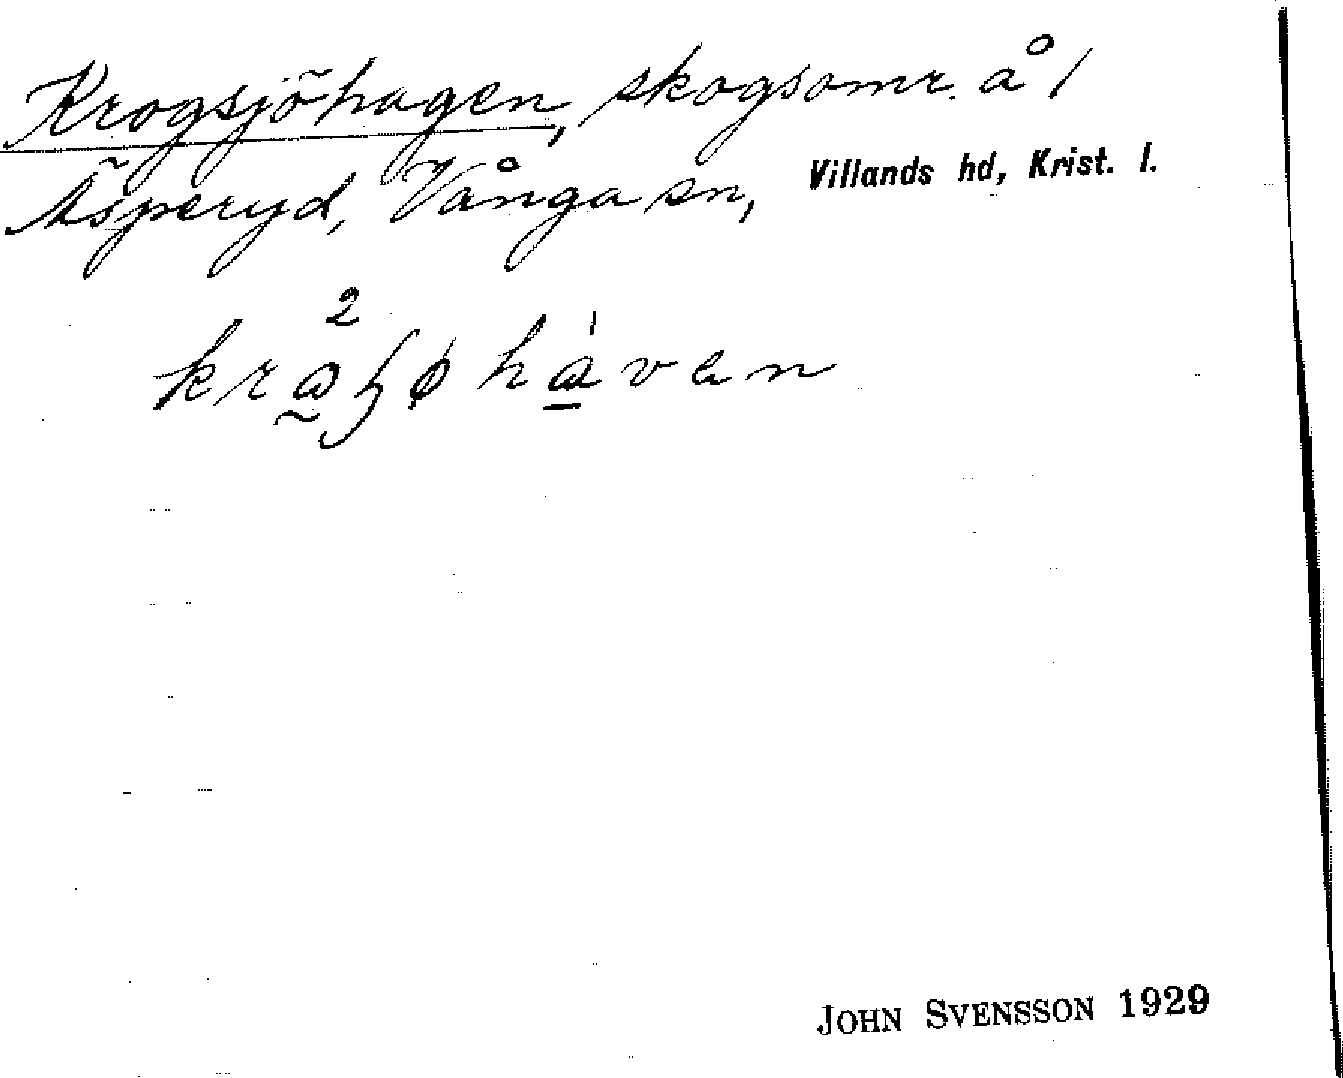 Krogsjöhagen, skogsomr. å 1
Äsperyd, Vånga sn, Villands hd, Krist. l.
JOHN SVENSSON 1929